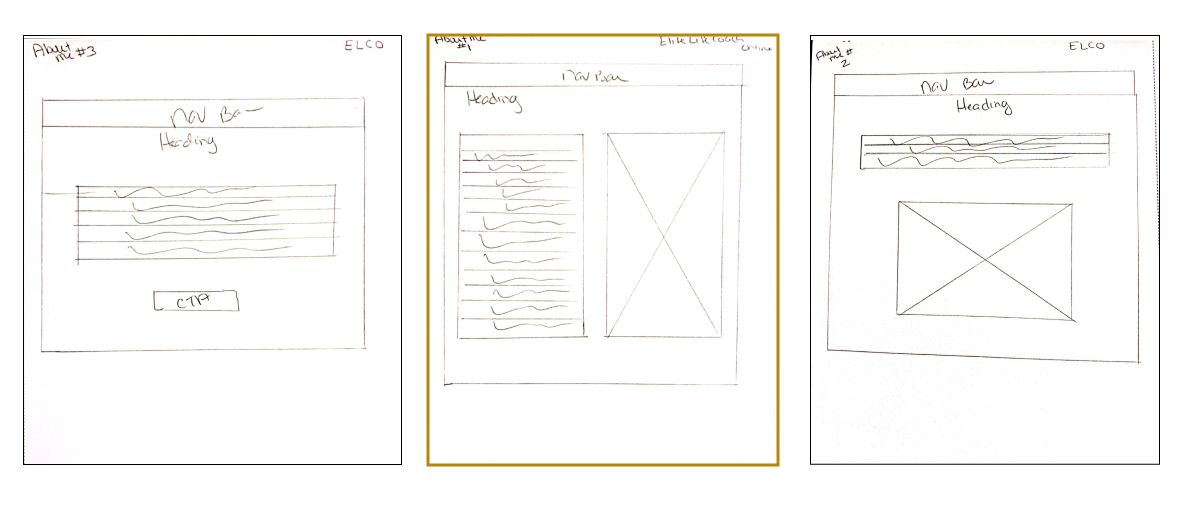 About
me #3
ELCO
Nav Bar
Heading
CTA
About me
#1
Elite Life Coach
Online
Nav Bar
Heading
About
me #
2
ELCO
Nav Bar
Heading